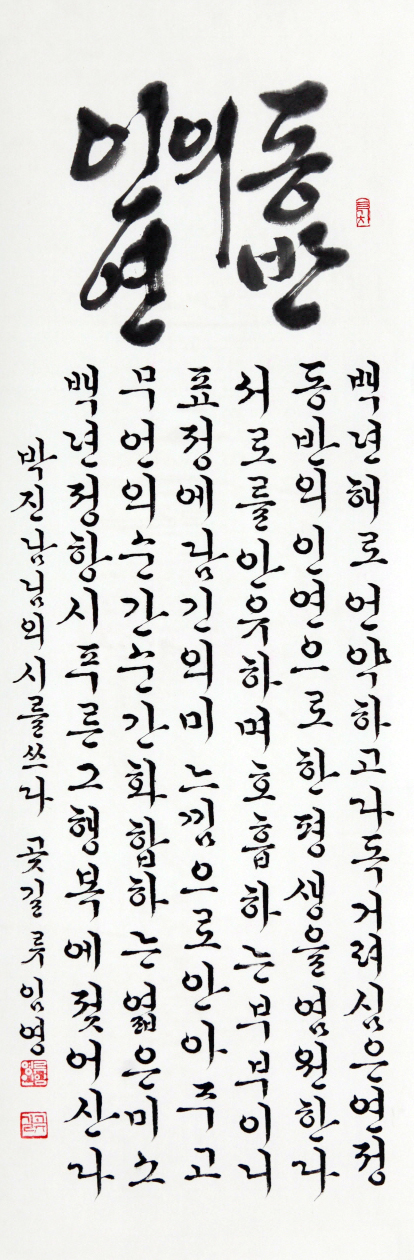 동반
의
인연
백년해로언약하고다독거려심은연정
동반의인연으로한평생을염원한다
서로를안유하며호흡하는부부이니
표정에담긴의미 느낌으로안아주고
무언의순간순간화합하는엷은미소
백년정항시푸른그행복에젖어산다
박진남님의시를쓰다 곶길 류임영